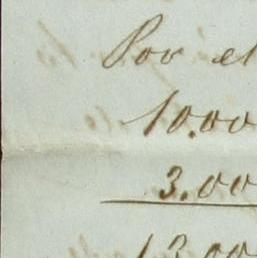 Por el
10.00
3.00
13.00